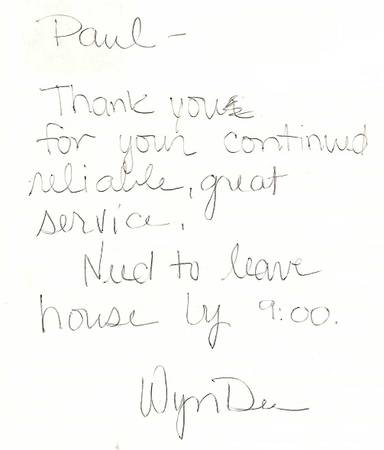 Paul –
Thank you
for your continued
reliable, great
service.
Need to leave
house by 9:00.
WynDee